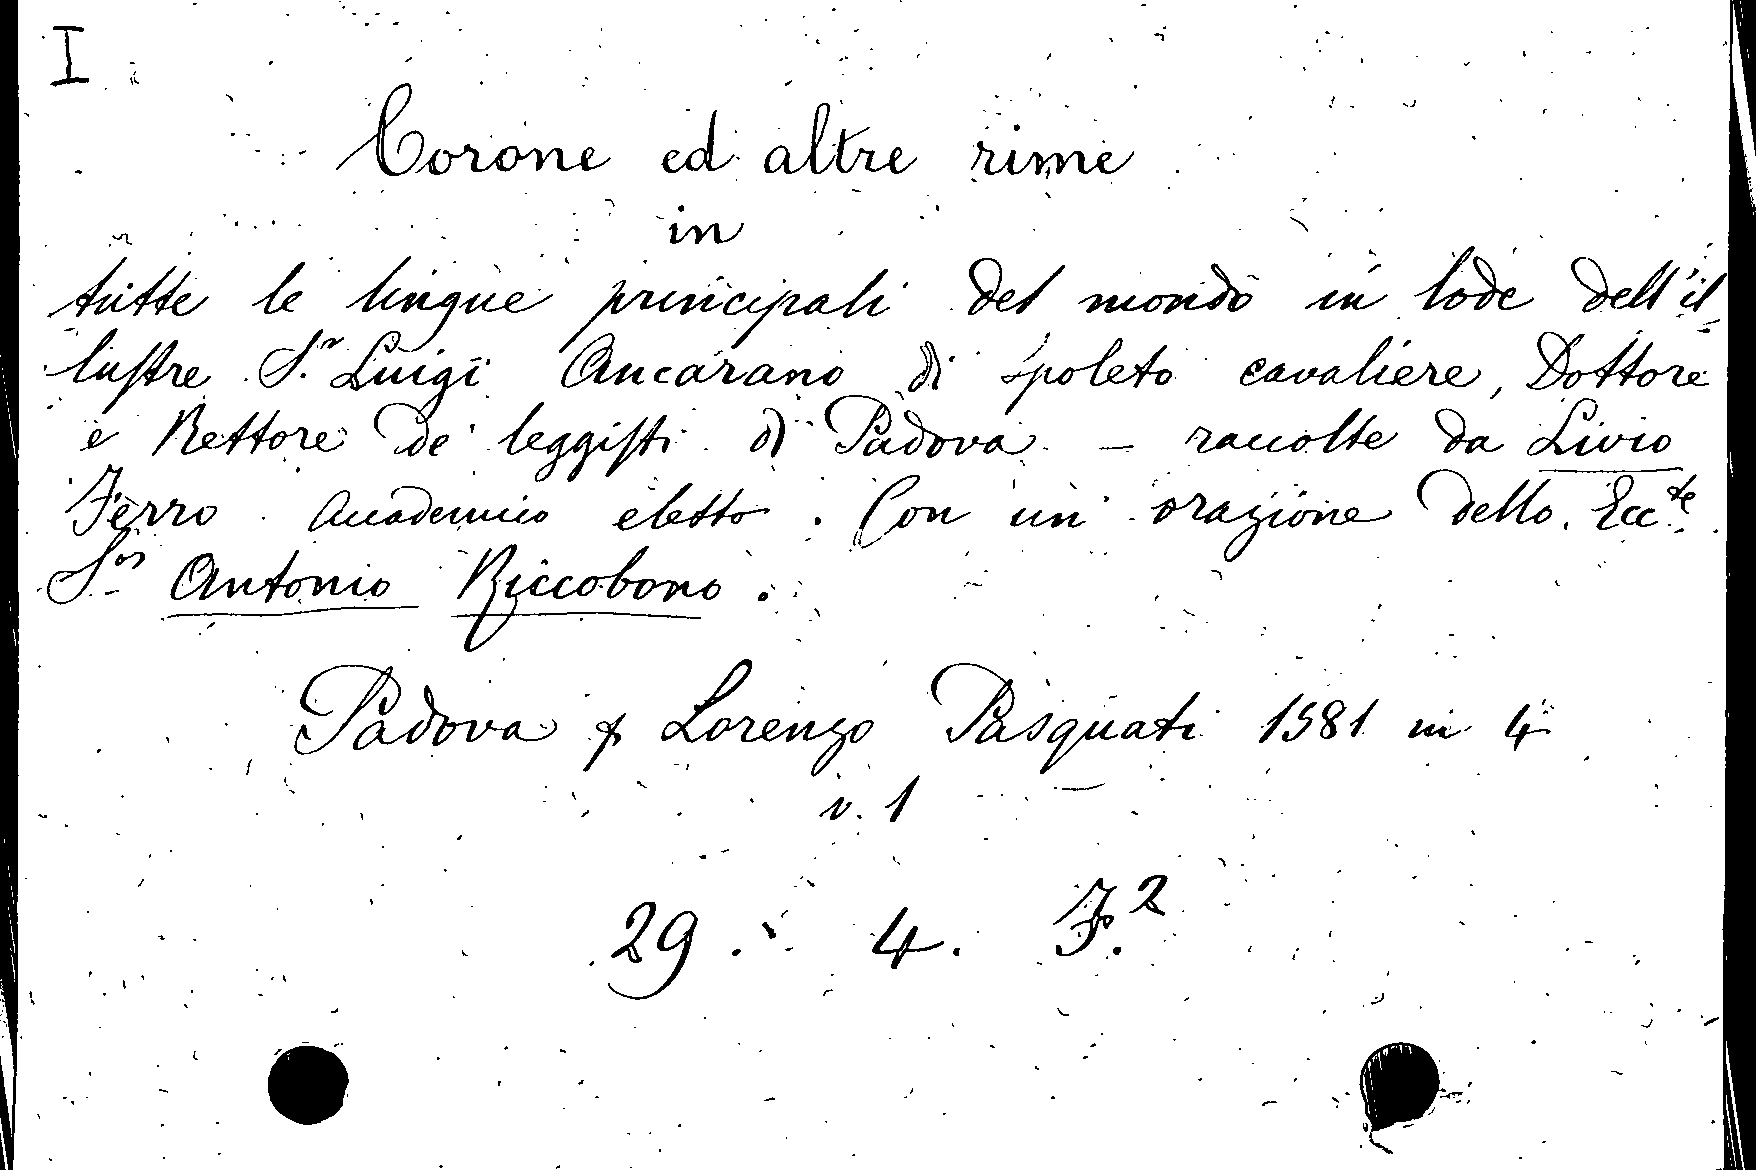 I
Corone ed altre rime
in
tutte le lingue principali del mondo in lode dell'il=
lustre S.r Luigi Ancarano di Spoleto cavaliere, Dottore
e Rettore de' leggisti di Padova – raccolte da Livio
Ferro Accademico eletto. Con un' orazione dello Ecc.te
S.or Antonio Riccobono.
Padova p Lorenzo Pasquati 1581 in 4
v. 1
29. 4. F.2